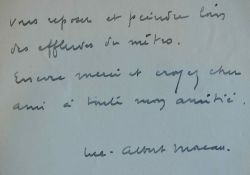 vous reposer et peindre loin
des effluves du métro.
Encore merci et croyez cher
ami à toute mon amitié.
Luc-Albert Moreau.